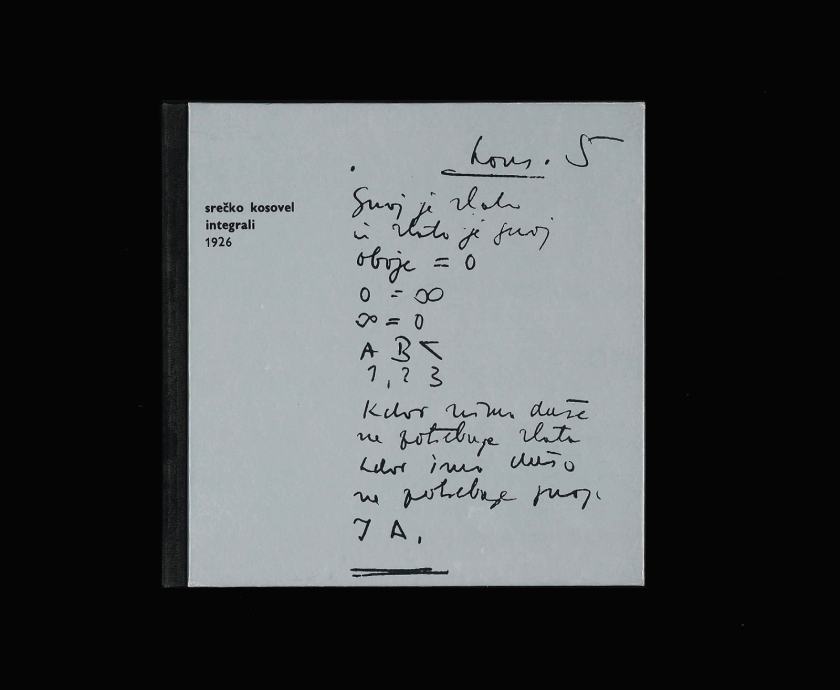 srečko kosovel
integrali
1926
Kons. 5
Gnoj je zlato
in zlato je gnoj
oboje = 0
0 = ∞
∞ = 0
A B <
1, 2 3
Kdor nima duše
ne potrebuje zlata
kdor ima dušo
ne potrebuje gnoja.
I A.